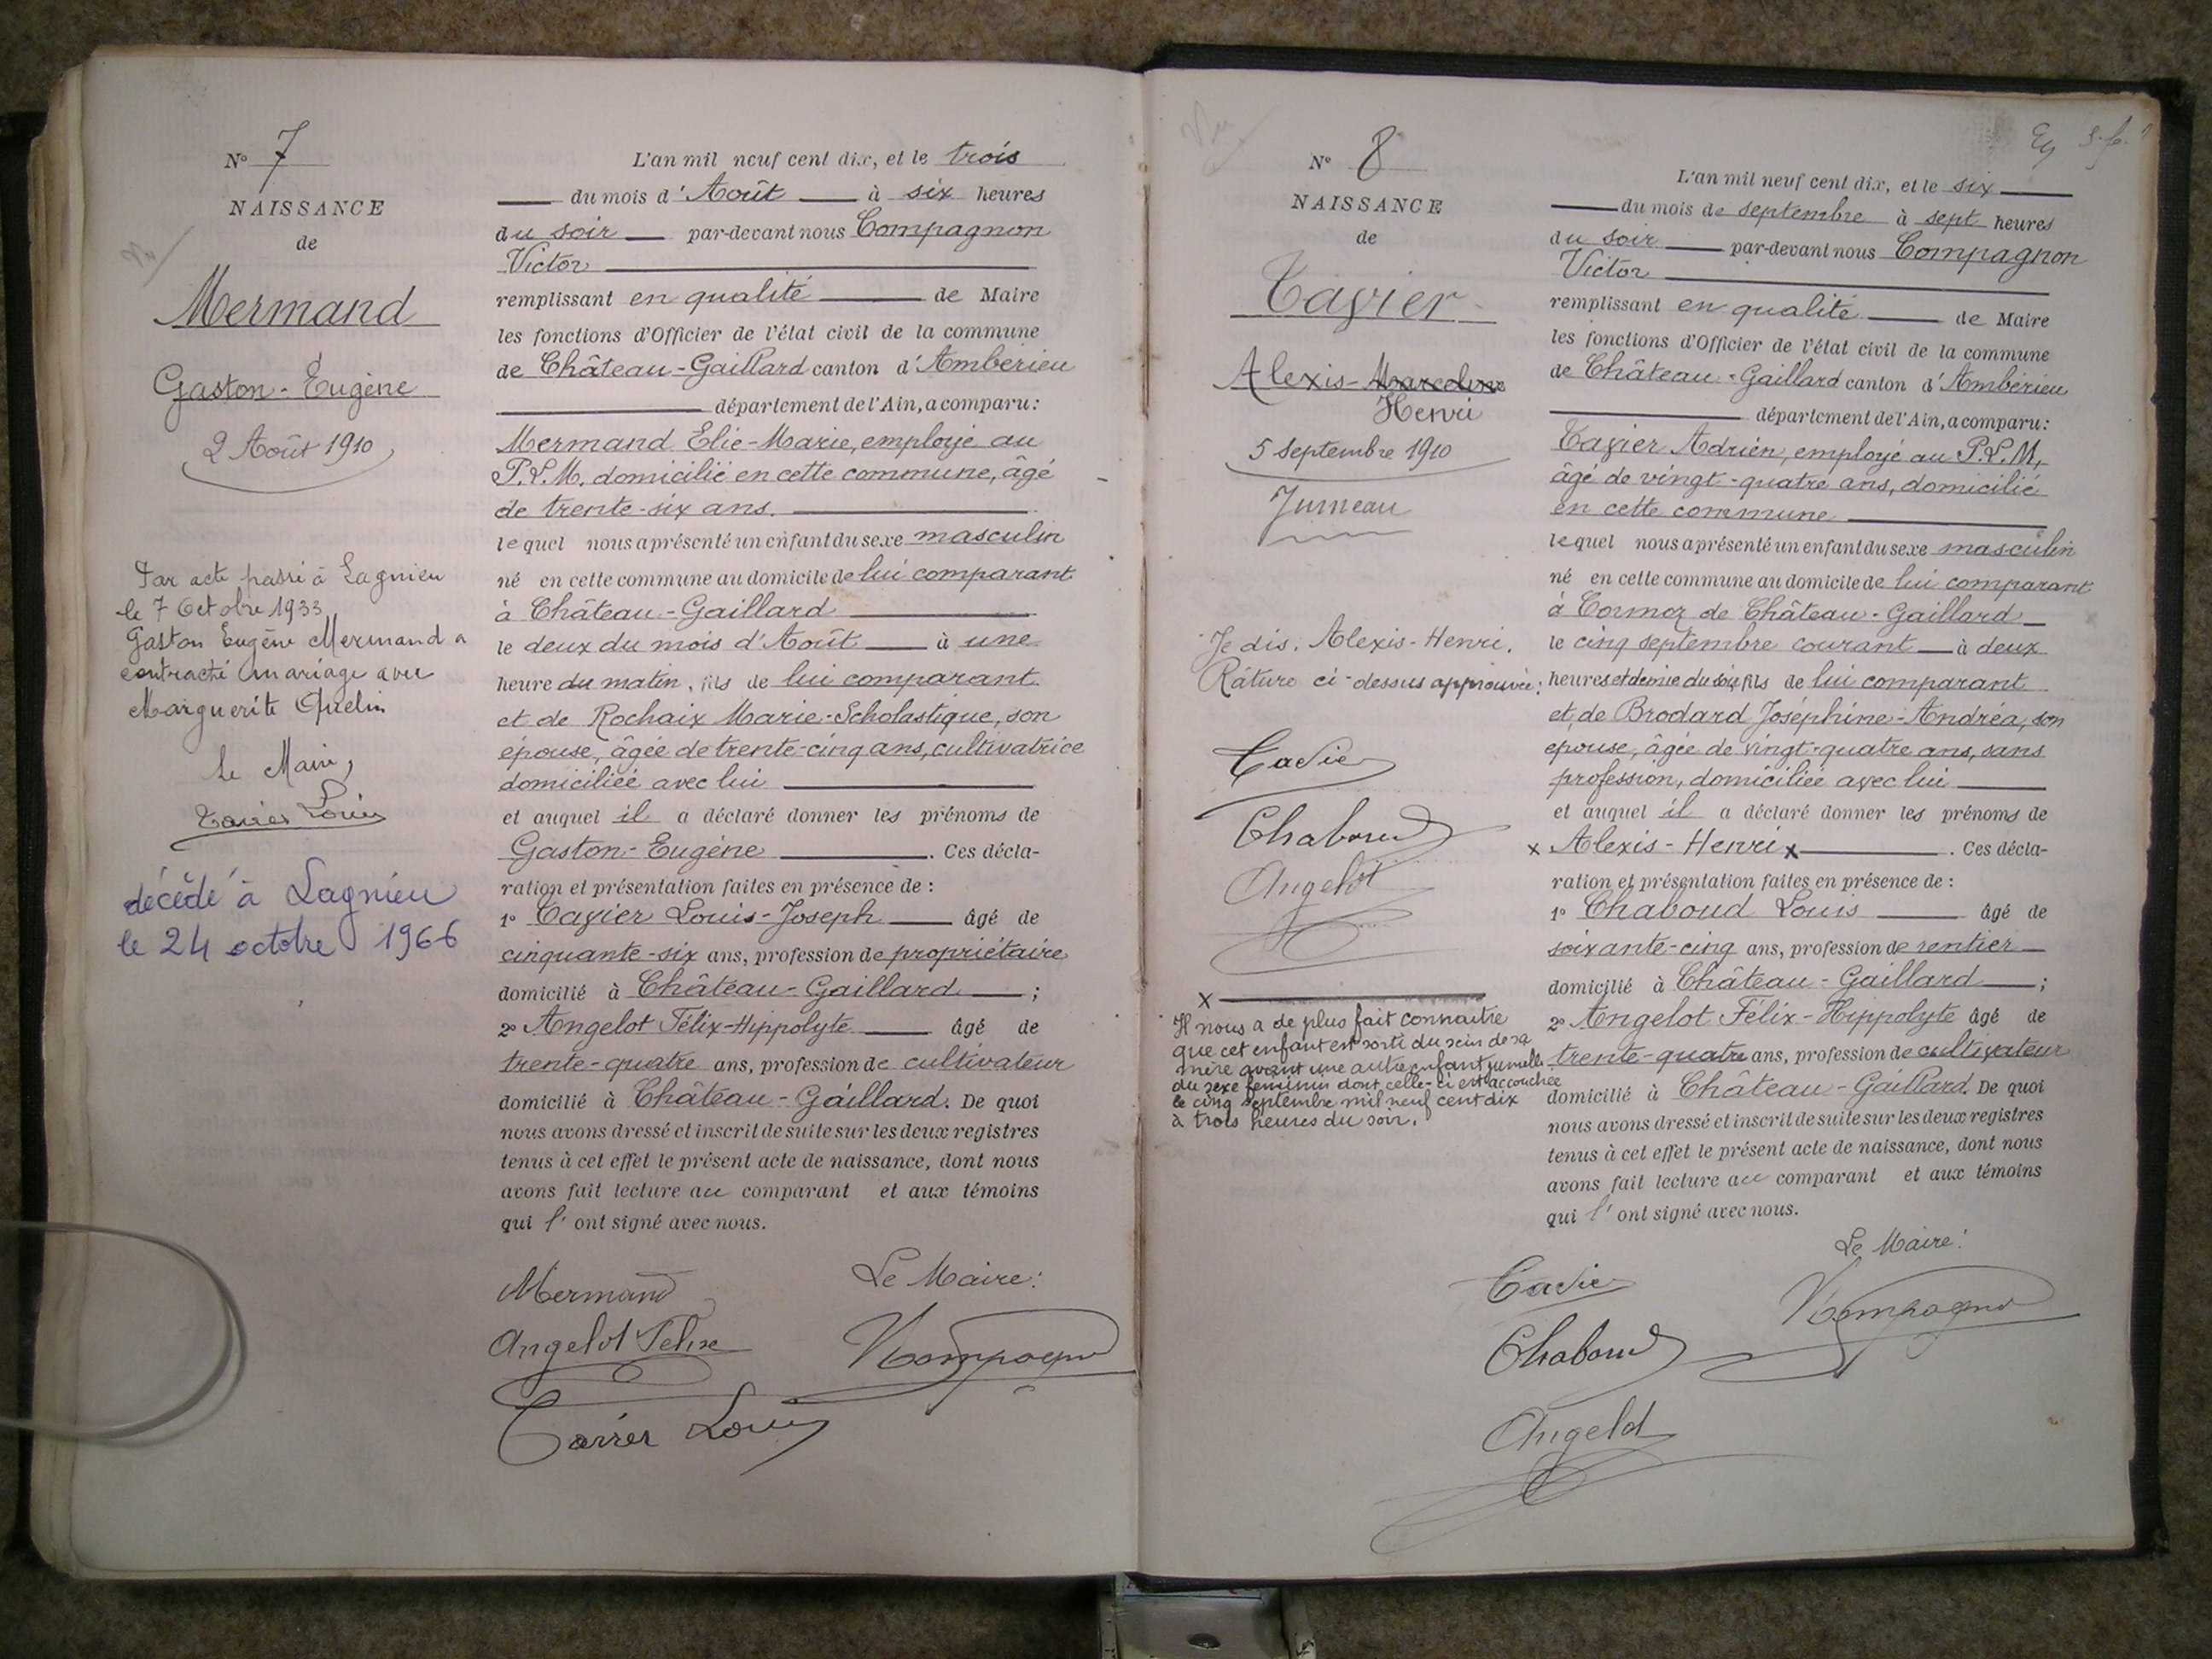 N° 7
NAISSANCE
de
Mermand
Gaston-Eugène
2 Août 1910
Par acte passé à Lagnieu
le 7 Octobre 1933
Gaston Eugène Mermand a
contracté mariage avec
Marguerite
Le Maire,
Tavier Louis
décédé à Lagnieu
le 24 octobre 1966
L'an mil neuf cent dix, et le trois
du mois d'Août à six heures
du soir par-devant nous Compagnon
Victor
remplissant en qualité de Maire
les fonctions d'Officier de l'état civil de la commune
de Château-Gaillard canton d'Ambérieu
département de l'Ain, a comparu:
Mermand Elie-Marie, employé au
P.L.M. domicilié en cette commune, âgé
de trente-six ans.
lequel nous a présenté un enfant du sexe masculin
né en cette commune au domicile de lui comparant
à Château-Gaillard
le deux du mois d'Août à une
heure du matin, fils de lui comparant
et de Rochaix Marie-Scholastique, son
épouse, âgée de trente-cinq ans, cultivatrice
domiciliée avec lui
et auquel il a déclaré donner les prénoms de
Gaston-Eugène. Ces décla-
ration et présentation faites en présence de :
1° Tavier Louis-Joseph âgé de
cinquante-six ans, profession de propriétaire
domicilié à Château-Gaillard ;
2° Angelot Félix-Hippolyte âgé de
trente-quatre ans, profession de cultivateur
domicilié à Château-Gaillard. De quoi
nous avons dressé et inscrit de suite sur les deux registres
tenus à cet effet le présent acte de naissance, dont nous
avons fait lecture au comparant et aux témoins
qui l'ont signé avec nous.
Mermand
Le Maire:
Angelot Félix
VCompagnon
Tavier Louis
N° 8
NAISSANCE
de
Tavier
Alexis-Marcelin
Henri
5 septembre 1910
Jumeau
Je dis. Alexis-Henri.
Râture ci-dessus approuvée:
Tavier
Chaboud
Angelot
x
Il nous a de plus fait connaitre
que cet enfant est sorti du sein de sa
mère avant une autre enfant jumelle
du sexe féminin dont celle-ci est accouchée
le cinq septembre mil neuf cent dix
à trois heures du soir.
L'an mil neuf cent dix, et le six
du mois de septembre à sept heures
du soir par-devant nous Compagnon
Victor
remplissant en qualité de Maire
les fonctions d'Officier de l'état civil de la commune
de Château-Gaillard canton d'Ambérieu
département de l'Ain, a comparu:
Tavier Adrien, employé au P.L.M,
âgé de vingt-quatre ans, domicilié
en cette commune
lequel nous a présenté un enfant du sexe masculin
né en cette commune au domicile de lui comparant
à Cormoz de Château-Gaillard
le cinq septembre courant à deux
heures et demie du soir, fils de lui comparant
et de Brodard Joséphine-Andréa, son
épouse, âgée de vingt-quatre ans, sans
profession, domiciliée avec lui
et auquel il a déclaré donner les prénoms de
x Alexis-Henri x. Ces décla-
ration et présentation faites en présence de :
1° Chaboud Louis âgé de
soixante-cinq ans, profession de rentier
domicilié à Château-Gaillard ;
2° Angelot Félix-Hippolyte âgé de
trente-quatre ans, profession de cultivateur
domicilié à Château-Gaillard. De quoi
nous avons dressé et inscrit de suite sur les deux registres
tenus à cet effet le présent acte de naissance, dont nous
avons fait lecture au comparant et aux témoins
qui l'ont signé avec nous.
Le Maire:
Tavier
VCompagnon
Chaboud
Angelot